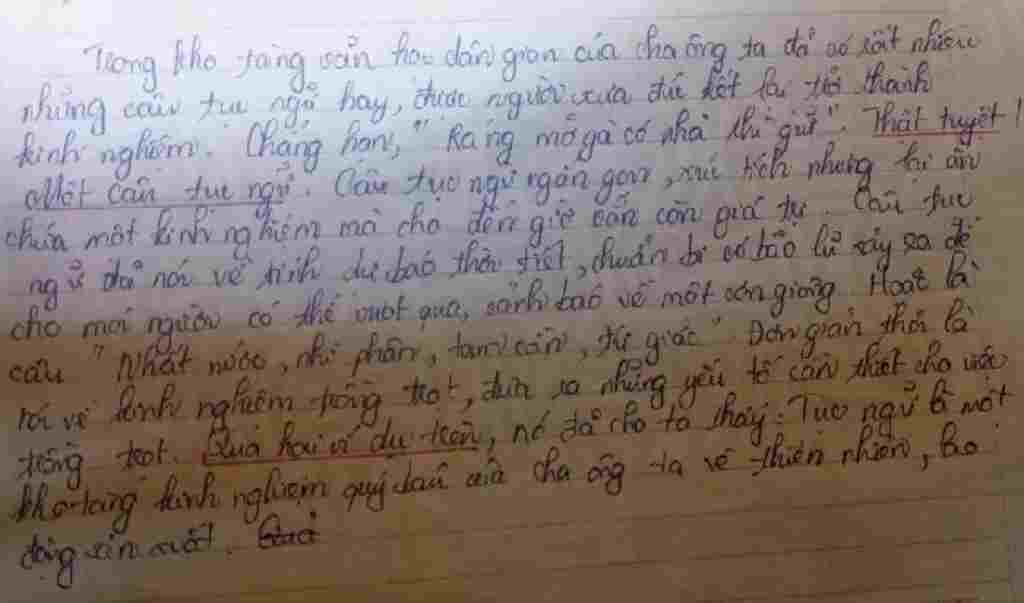 Trong kho tàng văn học dân gian của cha ông ta đã có rất nhiều
những câu tục ngữ hay, được người xưa đúc kết lại trở thành
kinh nghiệm. Chẳng hạn, "Ráng mỡ gà có nhà thì giữ". Thật tuyệt!
Một câu tục ngữ. Câu tục ngữ ngắn gọn, xúc tích nhưng lại ẩn
chứa một kinh nghiệm mà cho đến giờ vẫn còn giá trị. Câu tục
ngữ đã nói về tính dự báo thời tiết, chuẩn bị có bão lũ xảy ra để
cho mọi người có thể vượt qua, cảnh báo về một cơn giông. Hoặt là
câu "Nhất nước, nhì phân, tam cần, tứ giác" Đơn giản thôi là
nói về kinh nghiệm trồng trọt, đưa ra những yếu tố cần thiết cho việc
trồng trọt. Qua hai ví dụ trên, nó đã cho ta thấy: Tục ngữ là một
kho tàng kinh nghiệm quý báu của cha ông ta về thiên nhiên, lao
động sản xuất.